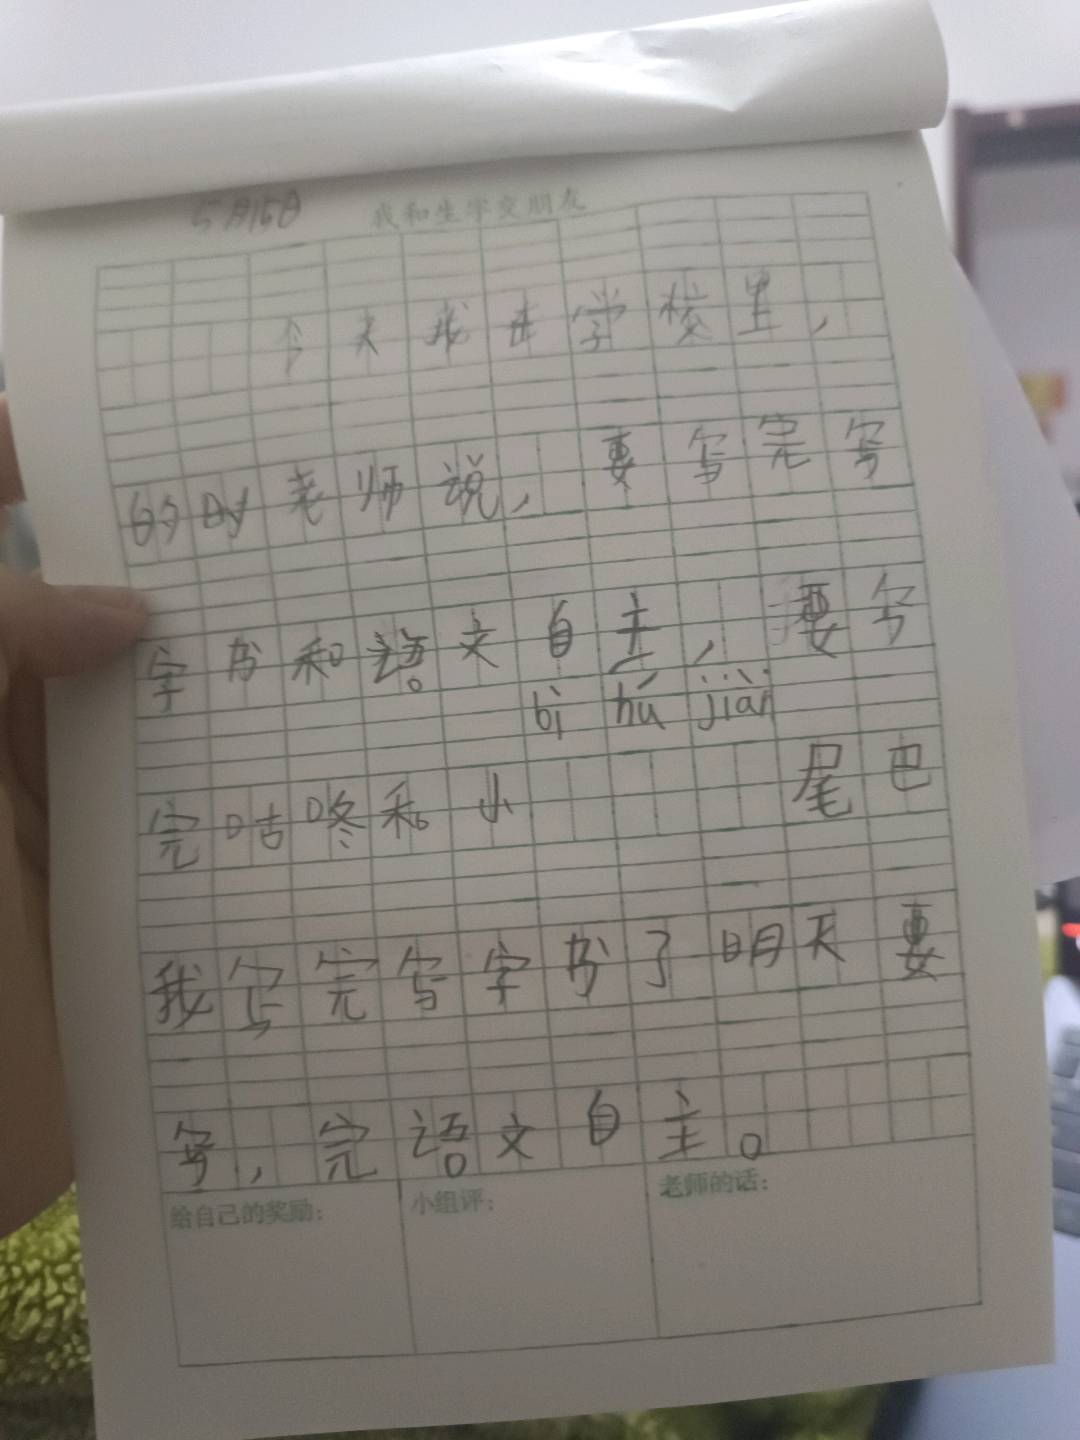 5月15日 我和生字交朋友
今天我在学校里,
的时老师说,要写完写
字书和语文自主,要写
bì hú jiàn
完咕咚和小 尾巴
我写完写字书了明天要
写,完语文自主。
给自己的奖励: 小组评: 老师的话: